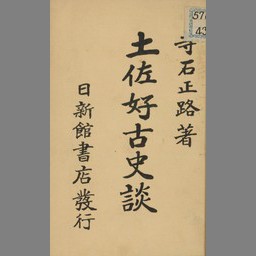 寺石正路著
土佐好古史談
日新館書店發行
57
43